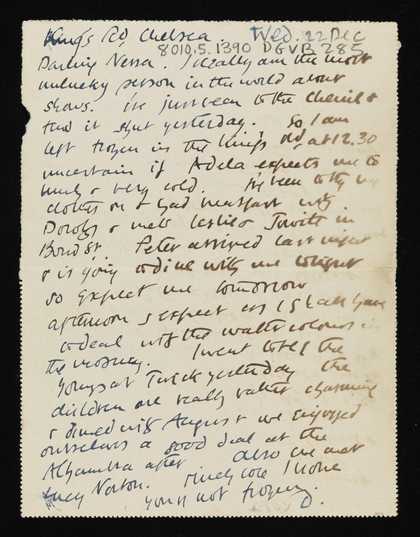 Kings Rd, Chelsea. Wed. 22 Dec
8010.5.1390 DGVB 285
Darling Nessa. I really am the most
unlucky person in the world about
shows. I've just been to the Chenil &
find it shut yesterday. So I am
left frozen in the Kings Rd, at 12.30
uncertain if Adela expects me to
lunch & very cold. I've been to try my
clothes on & had breakfast with
Dorothy & met Leslie Jowitt in
Bond St. Peter arrived last night
& is going to dine with me tonight
so expect me tomorrow
afternoon I expect as I shall have
to deal with the water colours in
the morning. I went to see the
Youngs at Twick yesterday the
children are really rather charming
& dined with August we enjoyed
ourselves a good deal at the
Alhambra after also we met
Lucy Norton. Rudely cold I hope
you're not frozen.
D.